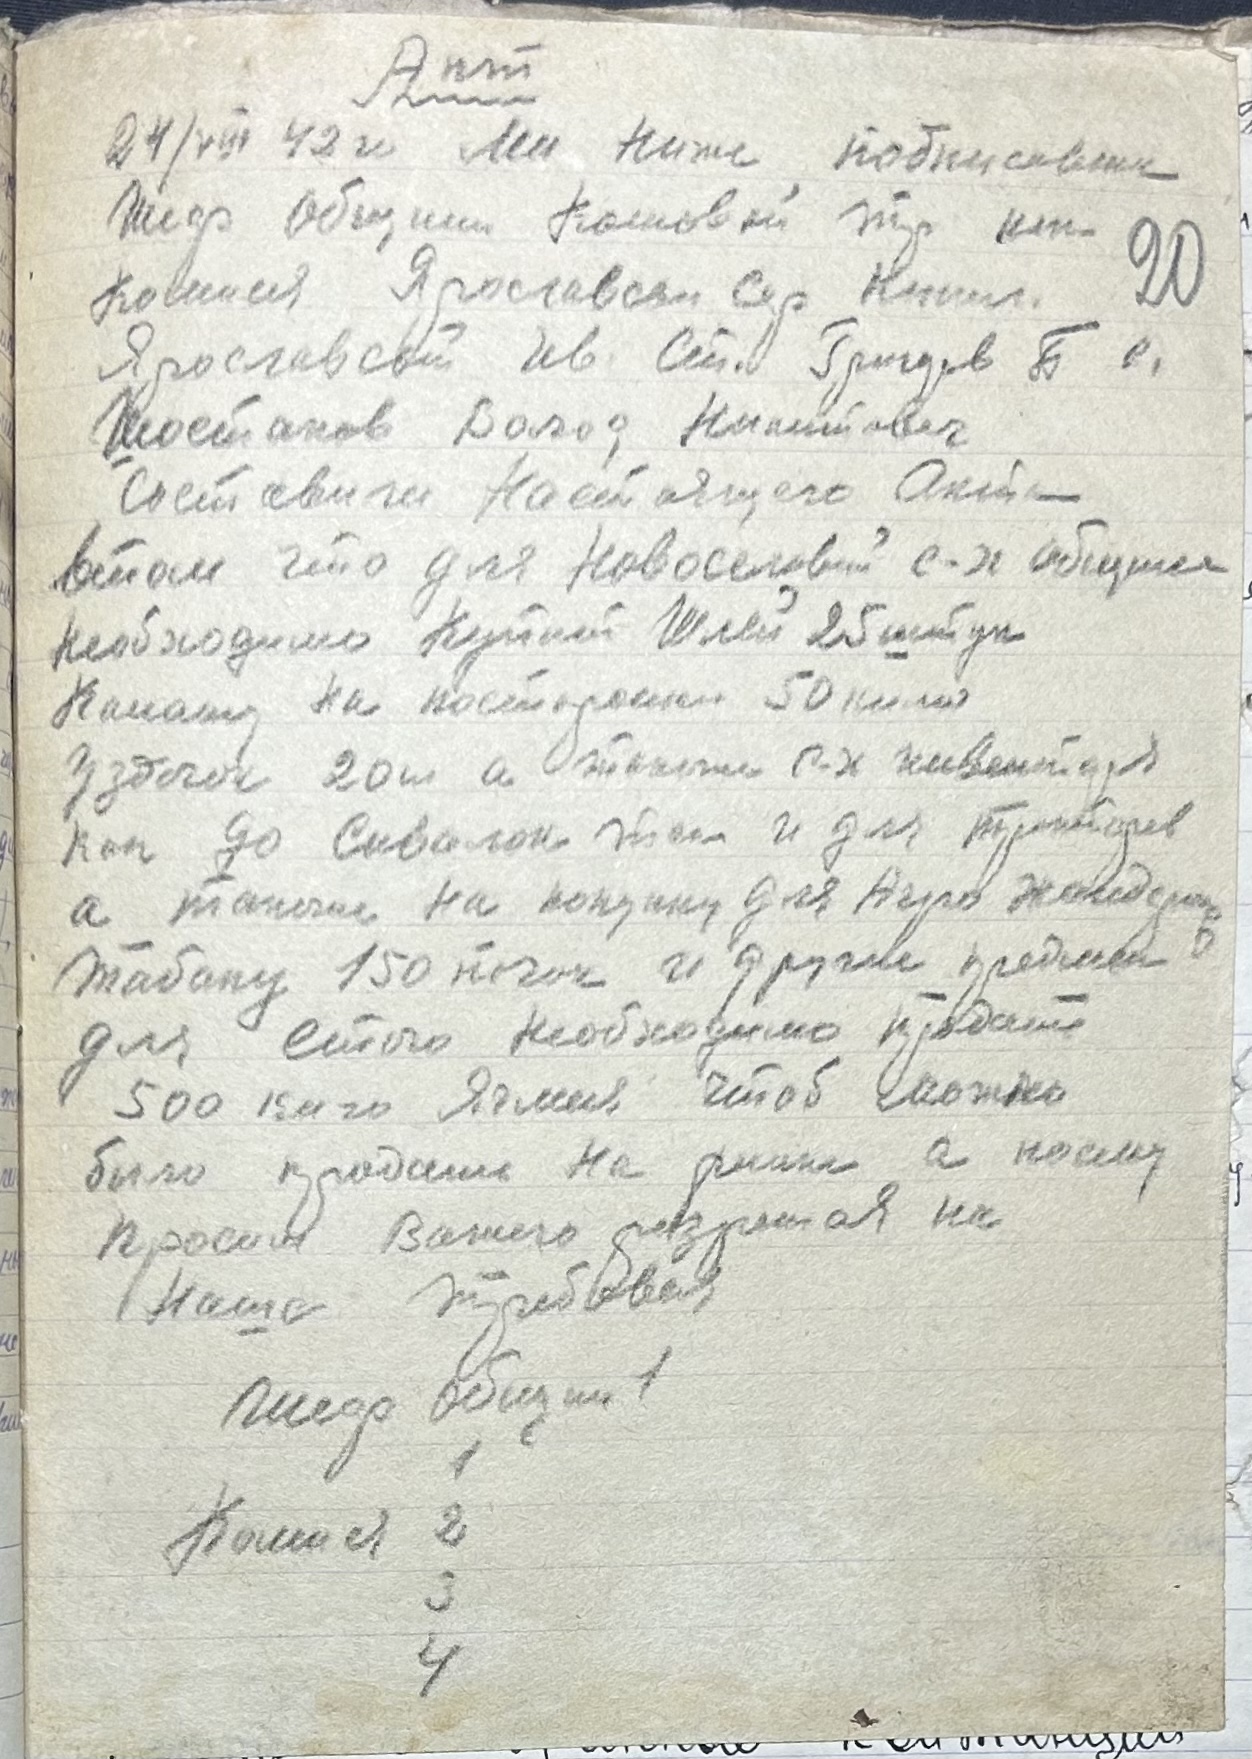 Акт
24/VIII 42 г Ми Ниже подписавши
Шеф Общини
комисия Ярославски Сер
Ярославский Ив. Ст. Б С.
Шостаков Волод Никитович
Составили Настаящего Акта
втом что для Новоселовий с-х общини
необходимо Купит Шлей 25 штук
Канату на посторонки 50 кило
Уздечок 20ш а также с-х инвентаря
как до Сивалок так и для тракторев
а также на покупку для Агро
Табаку 150 пачок и другие предмети
для етого необходимо продат
500 кило Ячменя чтоб можно
было продать на ринке а посему
Просим Вашего разрешая на
Наше требования
20
Шеф Общини 1
1
Комисия 2
3
4